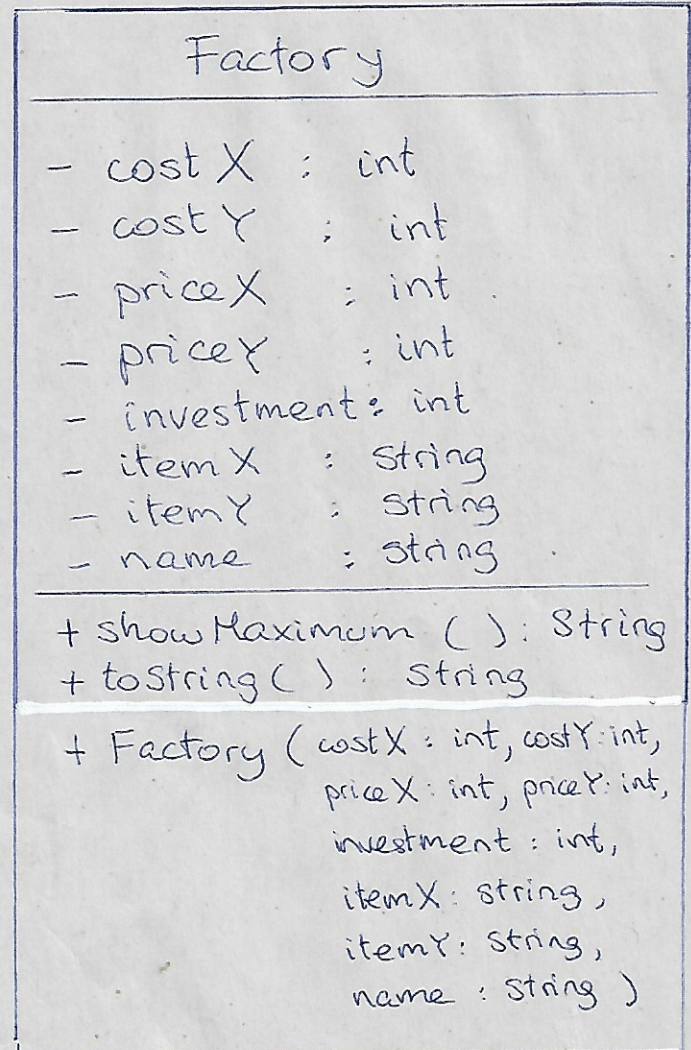 Factory
- costX : int
- costY : int
- priceX : int
- priceY : int
- investment : int
- itemX : string
- itemY : string
- name : string
+ showMaximum ( ) : String
+ toString ( ) : string
+ Factory ( costX : int, costY : int,
priceX : int, priceY : int,
investment : int,
itemX : string,
itemY : string,
name : string )